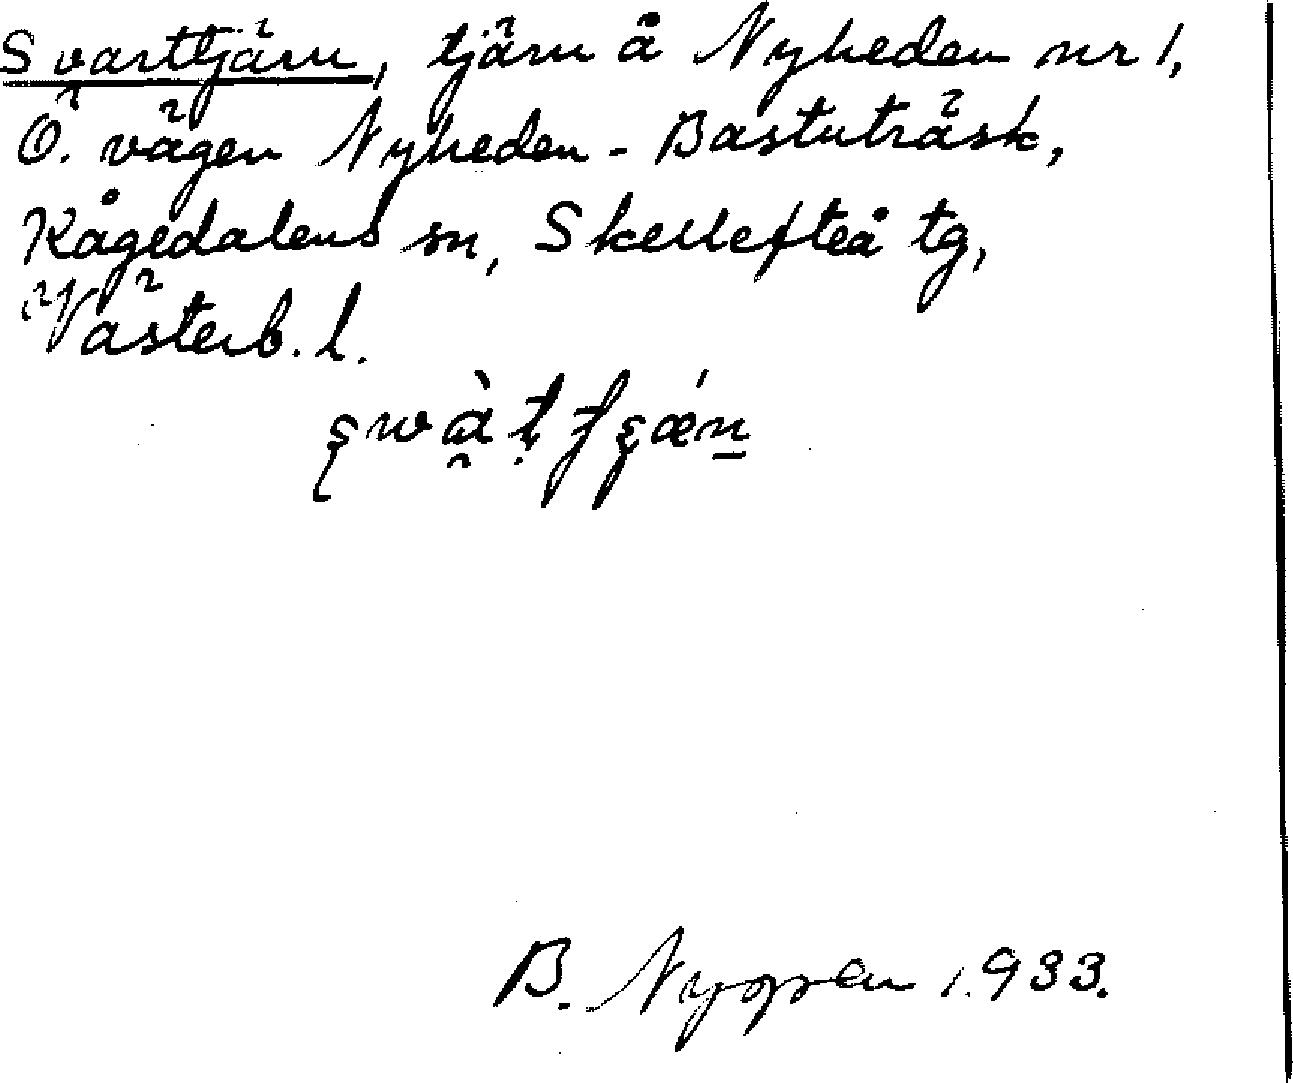 Svarttjärn, tjärn å Nyheden nr 1,
Ö. vägen Nyheden - Bastuträsk,
Kågedalens sn, Skellefteå tg,
Västerb. l.
B. Nygren 1933.